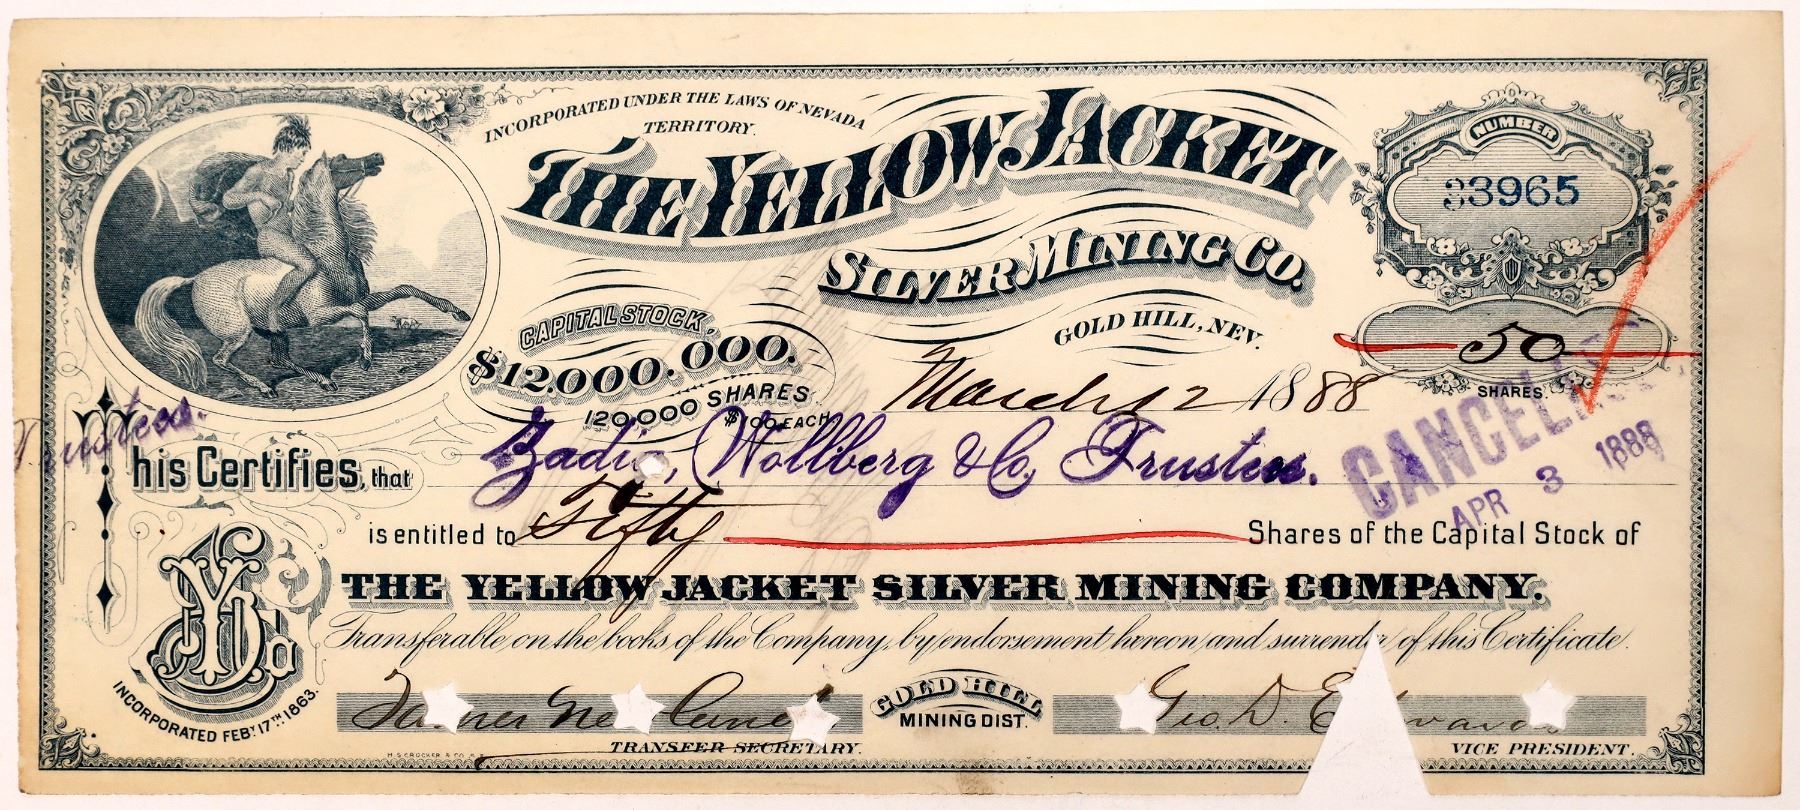 INCORPORATED UNDER THE LAWS OF NEVADA
TERRITORY.
THE YELLOW JACKET
SILVER MINING CO.
GOLD HILL, NEV.
NUMBER
33965
50
SHARES
CAPITAL STOCK,
$12,000.000.
120,000 SHARES
$100 EACH
March 12 1888
Trustees.
This Certifies, that Zadig, Wollberg & Co, Trustees.
CANCELLED
APR 3 1888
is entitled to Fifty Shares of the Capital Stock of
THE YELLOW JACKET SILVER MINING COMPANY.
Transferable on the books of the Company, by endorsement hereon and surrender of this Certificate.
INCORPORATED FEBY 17TH 1863.
GOLD HILL
MINING DIST.
Geo. D. Edwards
TRANSFER SECRETARY.
VICE PRESIDENT.
H.S. CROCKER & CO. S.F.